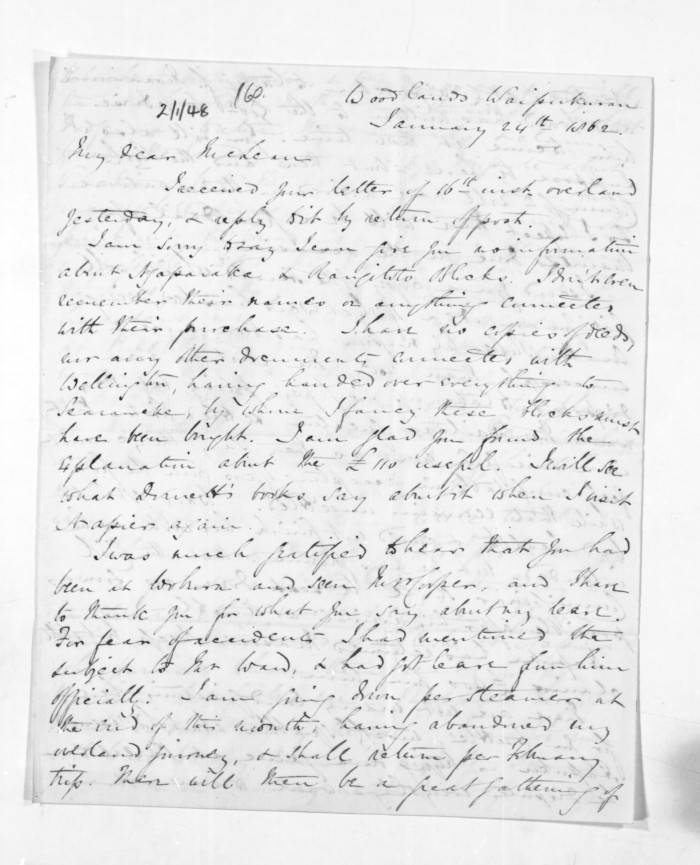 160.
2/1/48
Woodlands, Waipukurau
January 24th 1862.
My dear McLean
I received your letter of 16th inst. overland
yesterday, & reply to it by return of post.
I am sorry to say I can give you no information
about & Rangitoto Blocks. I don't even
remember their names or anything connected
with their purchase. I have no copies of deeds,
nor any other documents connected with
Wellington, having handed over everything to
Searancke, by whom I fancy these blocks must
have been bought. I am glad you found the
explanation about the £110 useful. I will see
what Domett's books say about it when I visit
Napier again.
I was much gratified to hear that you had
been at Woburn and seen Mrs Cooper, and I have
to thank you for what you say about my leave.
For fear of accidents I had mentioned the
subject to Mr Ward, & had got leave from him
officially. I am going down per steamer at
the end of this month, having abandoned my
overland journey, & shall return per February
trip. There will then be a great gathering of